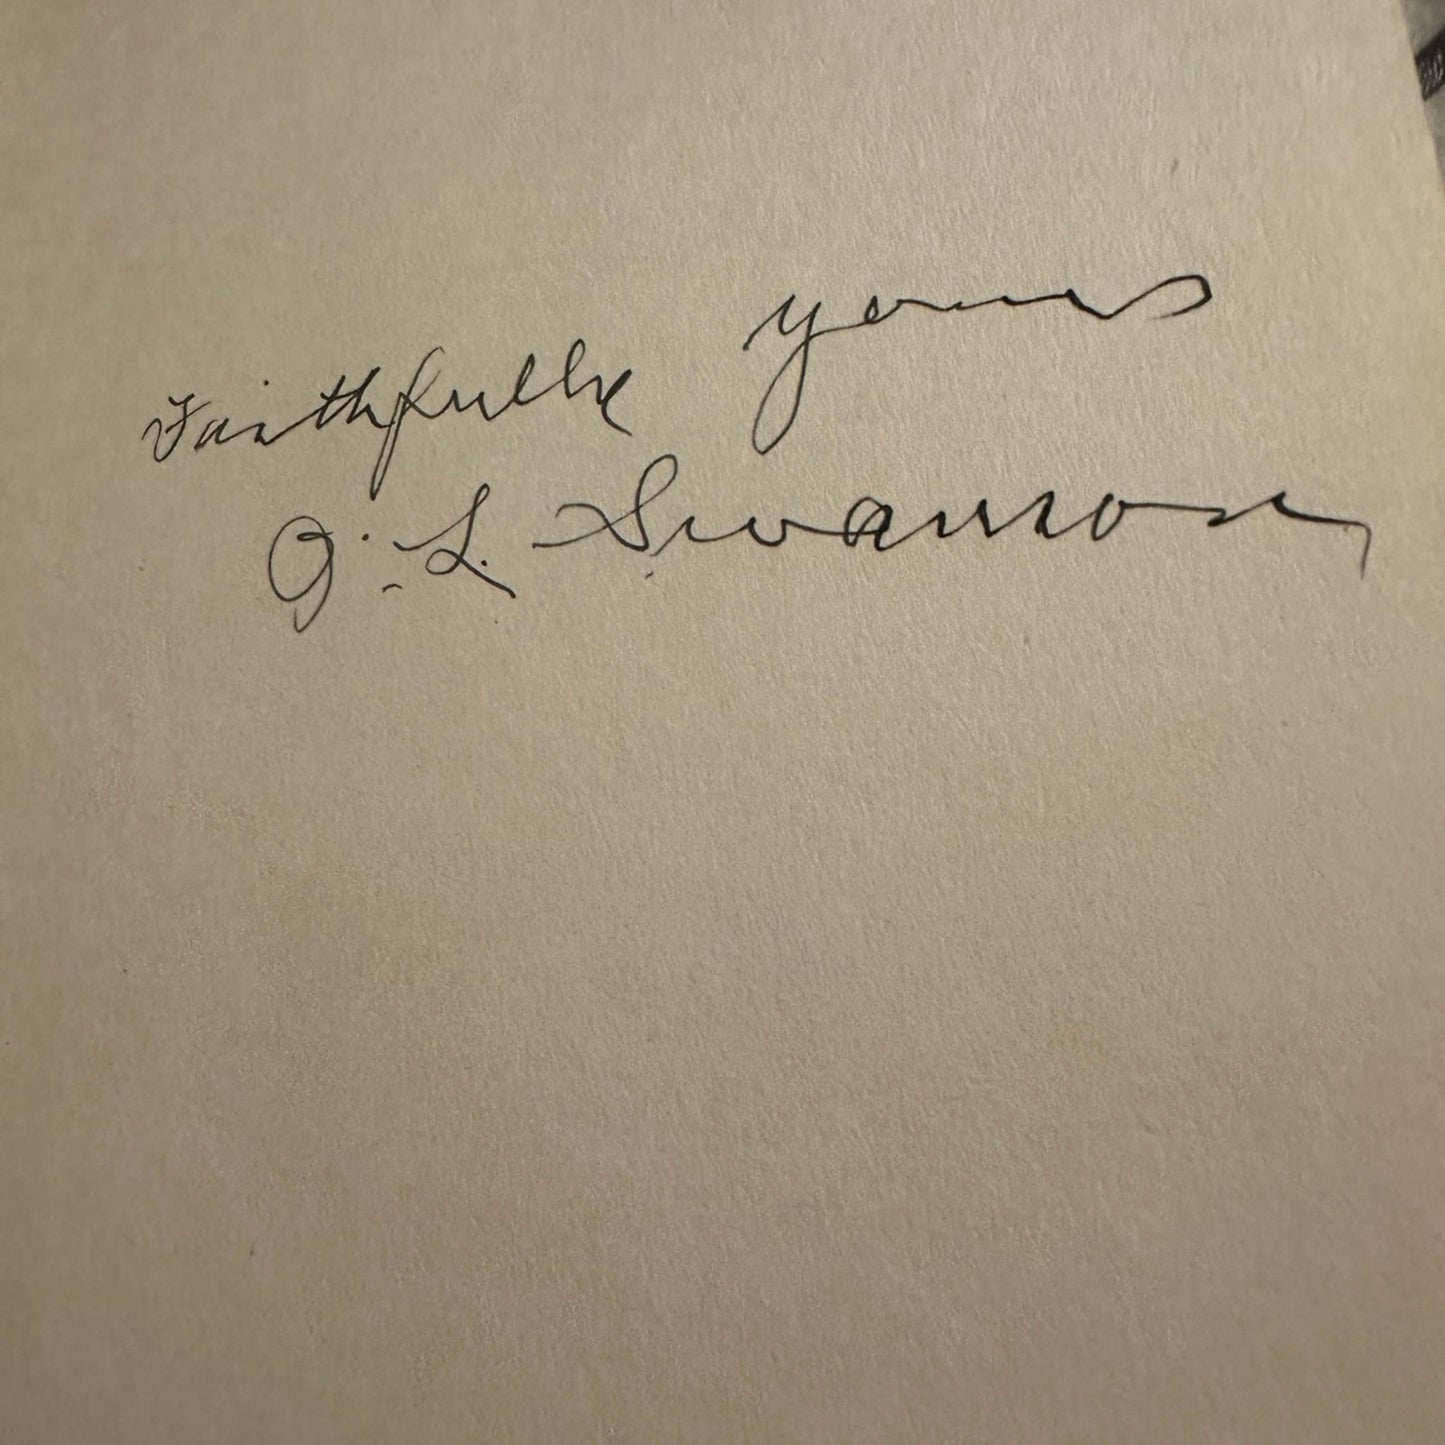 Faithfully yours
J. L. Swanson